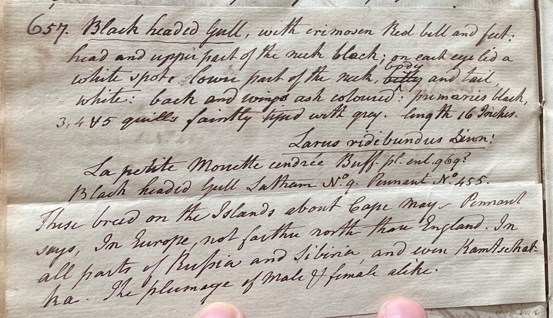 657. Black headed Gull, with crimosen Red bill and feet:
head and upper part of the neck black; on each eye lid a
white spot: lower part of the neck, body and tail
white: back and wings ash coloured: primaries black,
3, 4 & 5 quills faintly tiped with grey. length 16 Inches.
Larus ridibundus Linn:
La petite Mouette cendree Buff pl. enl. 969?
Black headed Gull Latham No. 9. Pennant No. 455.
These breed on the Islands about Cape may - Pennant
says, In Europe, not farther north than England. In
all parts of Russia and Sibiria and even Kamtschat-
ka. The plumage of Male & female alike.